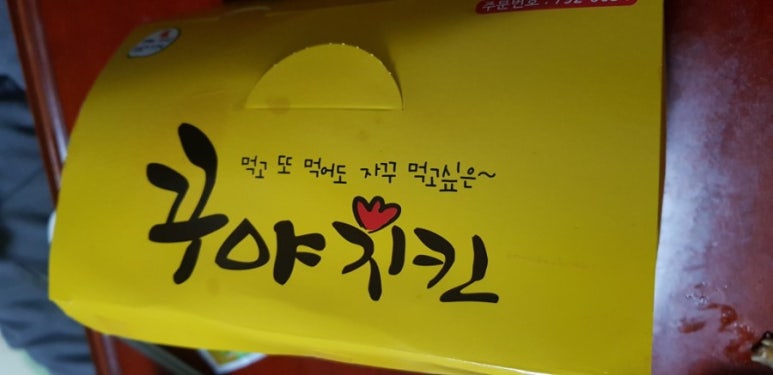 주문번호 : 792-
먹고 또 먹어도 자꾸 먹고싶은~
꾸야치킨